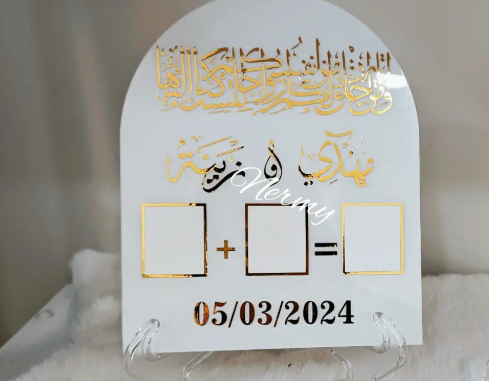 ومن آياته أن خلق لكم من أنفسكم أزواجا لتسكنوا إليها
مَهْدِي أو زَيْنَة
Nermy
+ =
05/03/2024